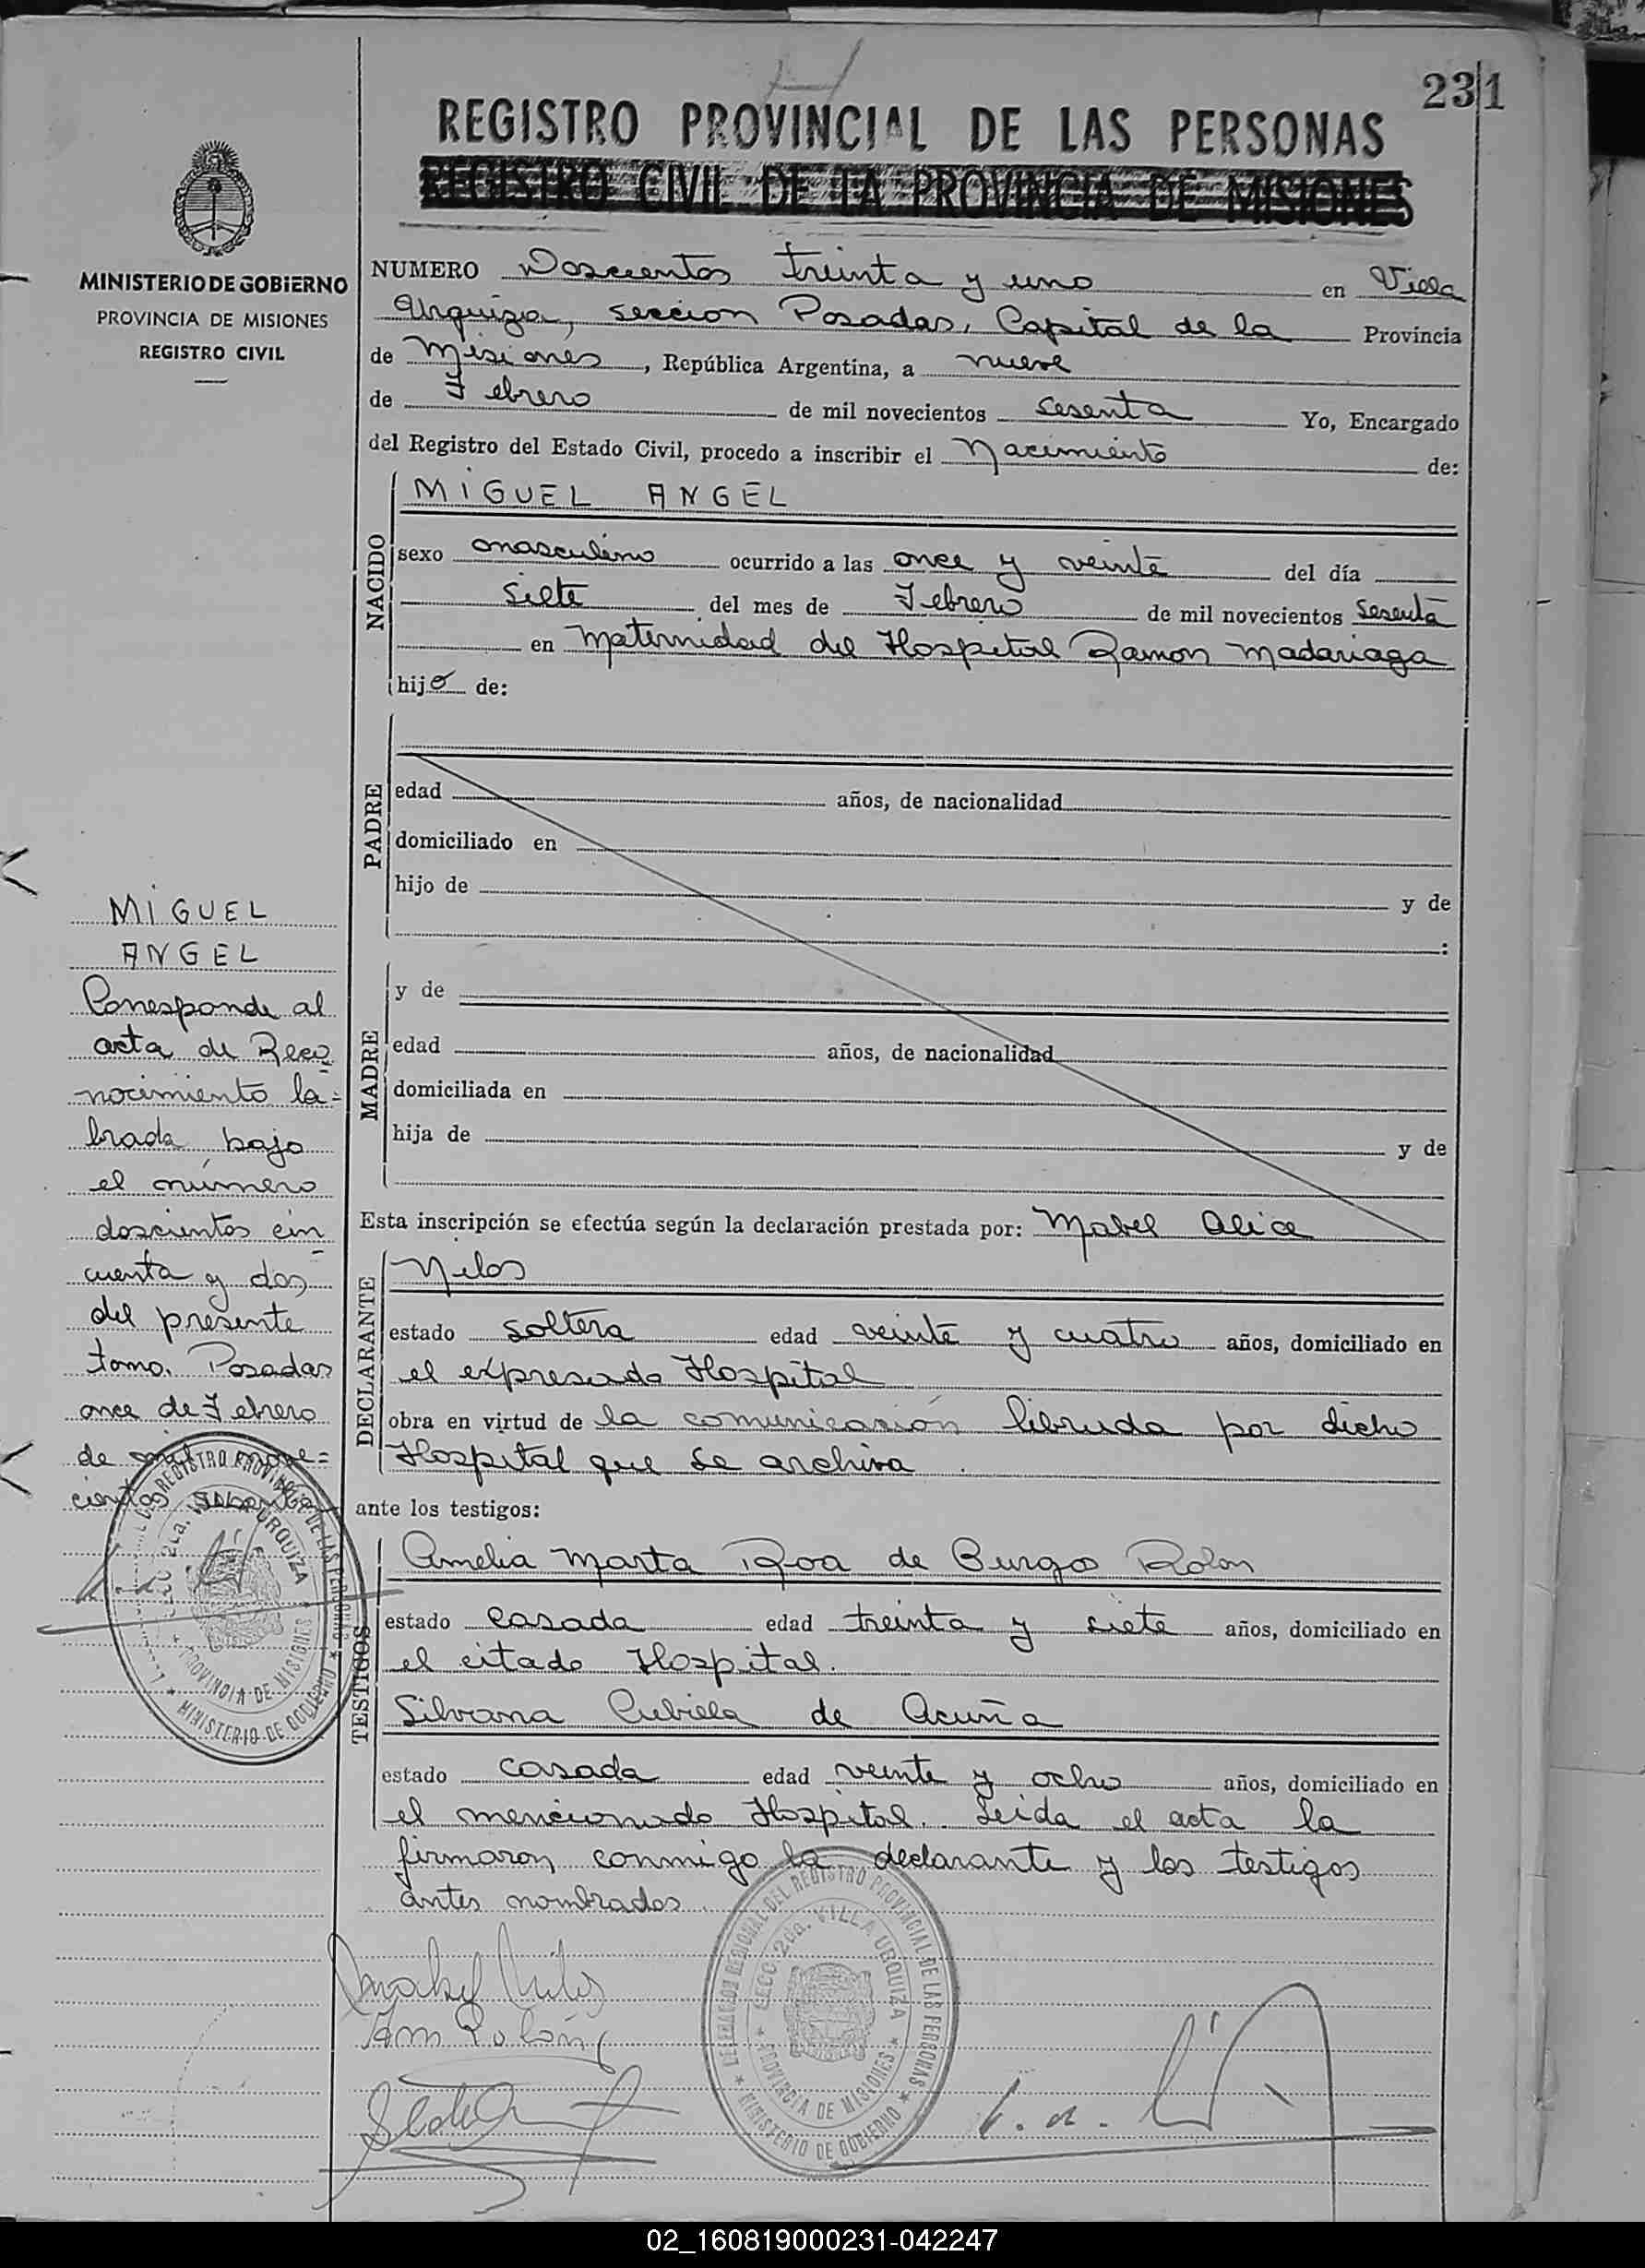 231
REGISTRO PROVINCIAL DE LAS PERSONAS
REGISTRO CIVIL DE LA PROVINCIA DE MISIONES
MINISTERIO DE GOBIERNO
PROVINCIA DE MISIONES
REGISTRO CIVIL
NUMERO Doscientos treinta y uno en Villa
Urquiza, seccion Posadas, Capital de la Provincia
de Misiones, República Argentina, a nueve
de Febrero de mil novecientos sesenta Yo, Encargado
del Registro del Estado Civil, procedo a inscribir el Nacimiento de:
NACIDO
MIGUEL ANGEL
sexo masculino ocurrido a las once y veinte del día
siete del mes de Febrero de mil novecientos sesenta
en Maternidad del Hospital Ramon Madariaga
hijo de:
PADRE
edad años, de nacionalidad
domiciliado en
hijo de y de
:
MADRE
y de
edad años, de nacionalidad
domiciliada en
hija de y de
Esta inscripción se efectúa según la declaración prestada por: Mabel Alice
DECLARANTE
Milos
estado soltera edad veinte y cuatro años, domiciliado en
el expresado Hospital
obra en virtud de la comunicación librada por dicho
Hospital que se archiva.
ante los testigos:
TESTIGOS
Amelia Marta Roa de Burgo Rolon
estado casada edad treinta y siete años, domiciliado en
el citado Hospital.
Silvana Cubilla de Acuña
estado casada edad veinte y ocho años, domiciliado en
el mencionado Hospital. Leida el acta la
firmaron conmigo la declarante y los testigos
antes nombrados.
MIGUEL
ANGEL
Corresponde al
acta de Reco
nocimiento la=
brada bajo
el número
doscientos cin
cuenta y dos
del presente
tomo. Posadas
once de Febrero
de mil nove=
cientos sesenta
SECC. 2da. VILLA URQUIZA
PROVINCIA DE MISIONES
MINISTERIO DE GOBIERNO
Mabel Milos
DELEGACION REGIONAL DEL REGISTRO PROVINCIAL DE LAS PERSONAS
SECC. 2da. VILLA URQUIZA
PROVINCIA DE MISIONES
MINISTERIO DE GOBIERNO
02_160819000231-042247